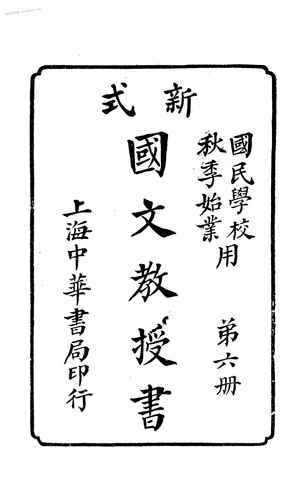 新式
國民學校
秋季始業用
第六册
國文教授書
上海中華書局印行